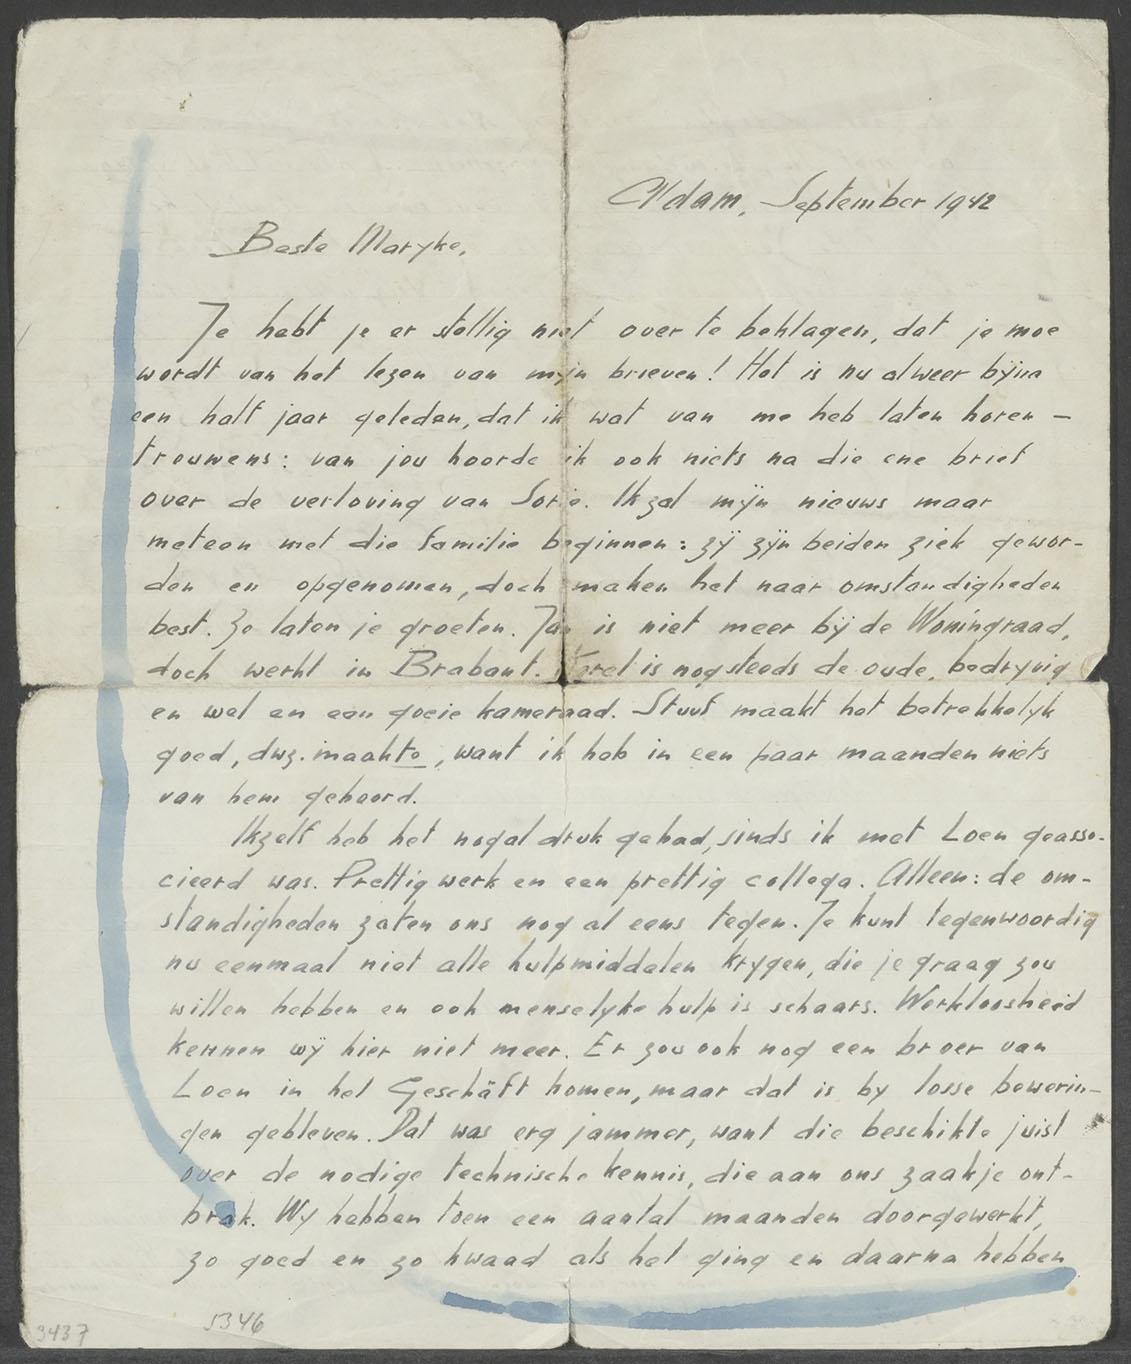 A'dam, September 1942
Beste Maryke,
Je hebt je er stellig niet over te beklagen, dat je moe
wordt van het lezen van mijn brieven! Het is nu alweer bijna
een half jaar geleden, dat ik wat van me heb laten horen –
trouwens: van jou hoorde ik ook niets na die ene brief
over de verloving van Sorje. Ik zal mijn nieuws maar
meteen met die familie beginnen: zij zijn beiden ziek gewor-
den en opgenomen, doch maken het naar omstandigheden
best. Ze laten je groeten. Jan is niet meer bij de Woningraad,
doch werkt in Brabant. Karel is nog steeds de oude, bedryvig
en wel en een goeie kameraad. Stuuf maakt het betrekkelyk
goed, dwz. maakte, want ik heb in een paar maanden niets
van hem gehoord.
Ikzelf heb het nogal druk gehad, sinds ik met Loen geasso-
cieerd was. Prettig werk en een prettig collega. Alleen: de om-
standigheden zaten ons nog al eens tegen. Je kunt tegenwoordig
nu eenmaal niet alle hulpmiddelen krygen, die je graag zou
willen hebben en ook menselyke hulp is schaars. Werkloosheid
kennen wij hier niet meer. Er zou ook nog een broer van
Loen in het Geschäft komen, maar dat is by losse bewerin-
gen gebleven. Dat was erg jammer, want die beschikte juist
over de nodige technische kennis, die aan ons zaakje ont-
brak. Wy hebben toen een aantal maanden doorgewerkt,
zo goed en zo kwaad als het ging en daarna hebben
5346
3437